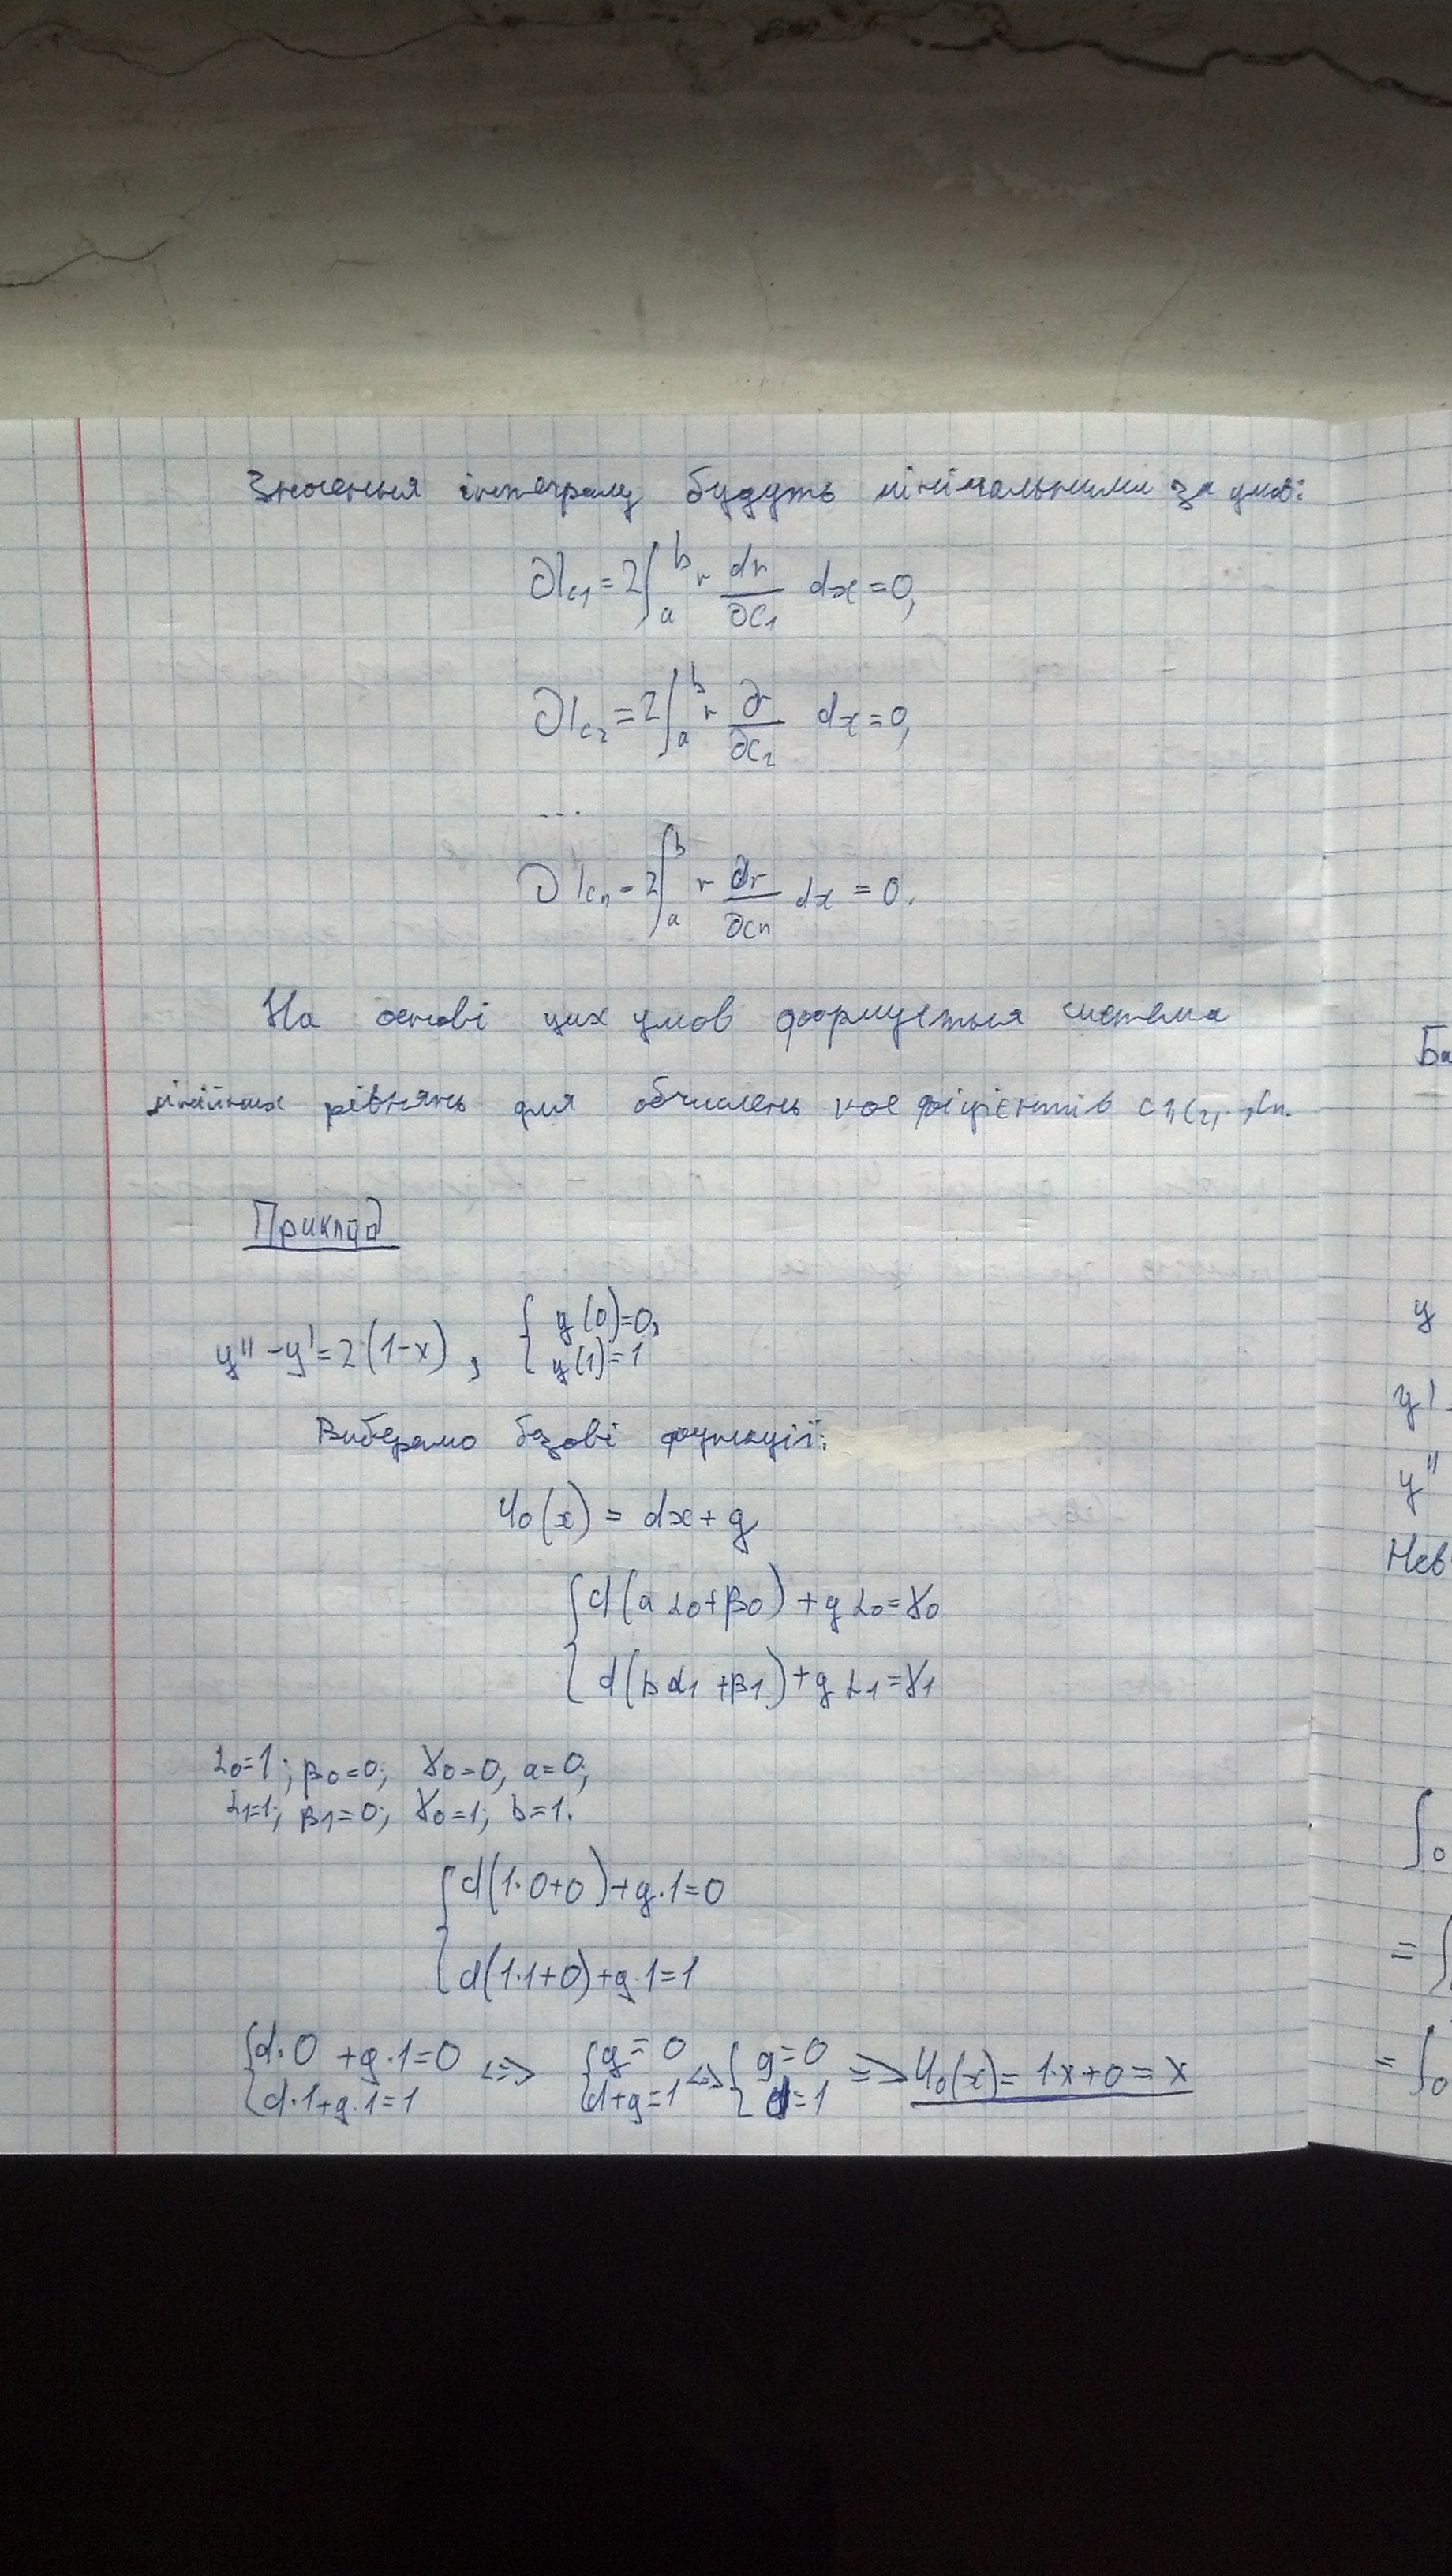 Значення інтегралу будуть мінімальними за умов:
∂Ic₁ = 2∫ₐᵇ r dr/∂C₁ dx = 0,
∂Ic₂ = 2∫ₐᵇ r ∂r/∂C₂ dx = 0,
...
∂Icₙ = 2∫ₐᵇ r ∂r/∂Cn dx = 0.
На основі цих умов формується система
лінійних рівнянь для обчислень коефіцієнтів C1, C2, .., Cn.
Приклад
y'' - y' = 2(1-x), { y(0)=0, y(1)=1
Виберемо базові функції:
U₀(x) = dx + g
{ d(a α₀+β₀) + g α₀ = γ₀
d(b α₁ + β₁) + g α₁ = γ₁
α₀=1; β₀=0; γ₀=0, a=0;
α₁=1; β₁=0; γ₀=1; b=1.
{ d(1·0+0)+g·1=0
d(1·1+0)+g·1=1
{ d·0 + g·1=0 <=> { g=0 <=> { g=0 => U₀(x) = 1·x+0 = x
d·1+g·1=1 d+g=1 d=1
Ба
y
y'
y''
Нев
∫₀
= ∫
= ∫₀